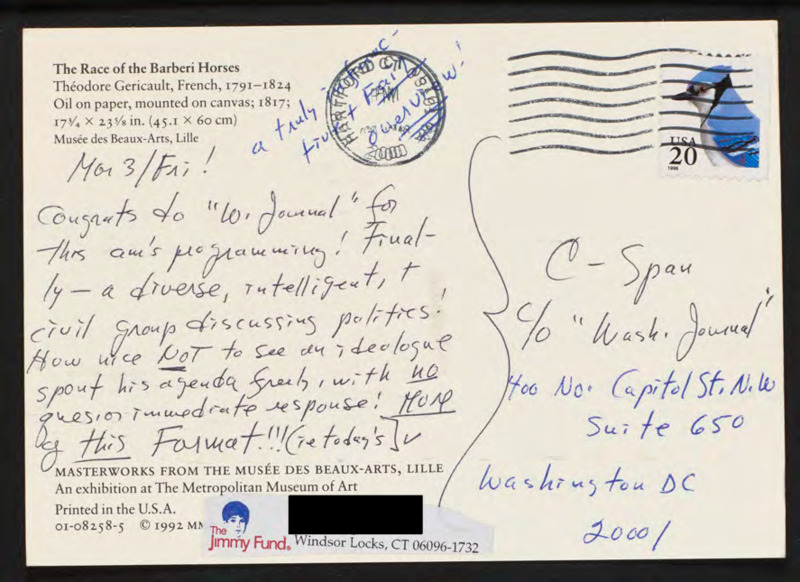 The Race of the Barberi Horses
Théodore Gericault, French, 1791–1824
Oil on paper, mounted on canvas; 1817;
17¾ × 23⅝ in. (45.1 × 60 cm)
Musée des Beaux-Arts, Lille
a truly
HARTFORD CT
2000
USA
20
1996
Mar 3/Fri!
Congrats to "W. Journal" for
this am's programming! Final-
ly — a diverse, intelligent, +
civil group discussing politics!
How nice NOT to see an ideologue
spout his agenda freely, with no
ques. or immediate response! More
of this Format!!! (re today's)
C-Span
c/o "Wash. Journal"
400 No. Capitol St. N.W
Suite 650
Washington DC
20001
MASTERWORKS FROM THE MUSÉE DES BEAUX-ARTS, LILLE
An exhibition at The Metropolitan Museum of Art
Printed in the U.S.A.
01-08258-5 © 1992 MM
The
Jimmy Fund®
Windsor Locks, CT 06096-1732